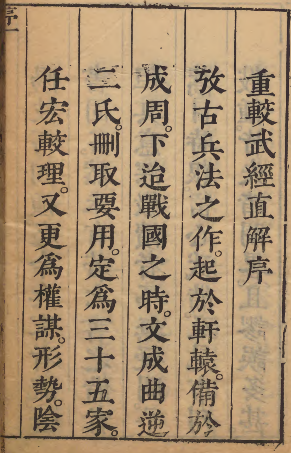 重較武經直解序
攷古兵法之作。起於軒轅。備於
成周。下迨戰國之時。文成曲逆
二氏。刪取要用。定爲三十五家。
任宏較理。又更爲權謀。形勢。陰